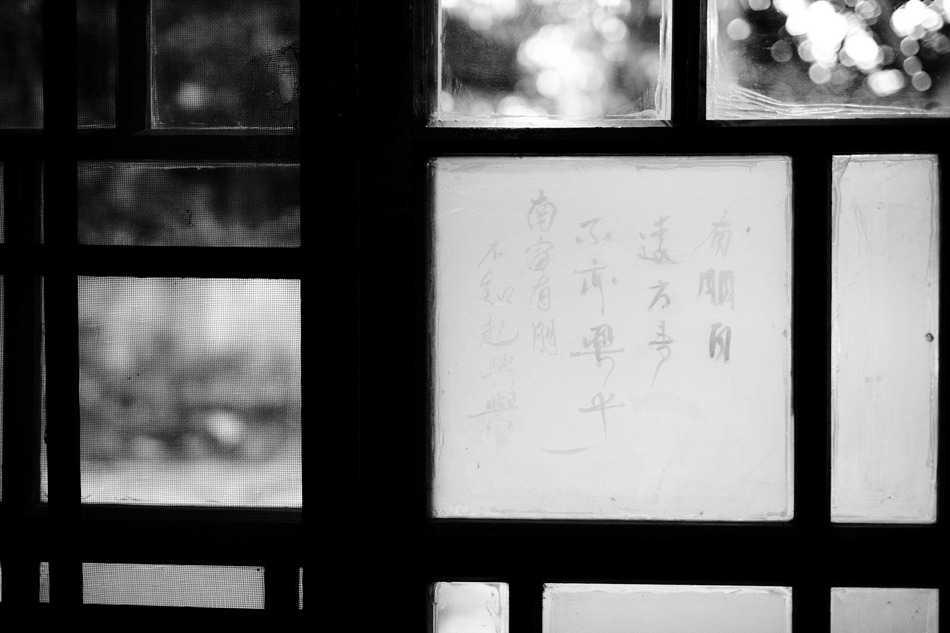 有朋自
遠方来
不亦樂乎
南窗有朋
不知起